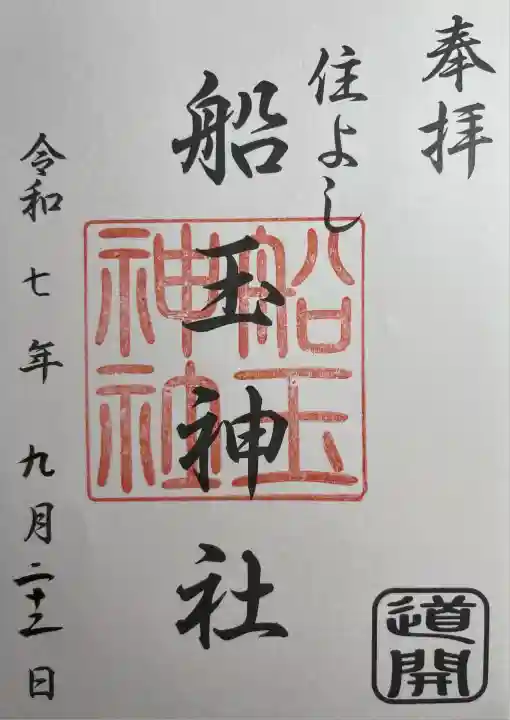 奉拝
住よし
船玉神社
船玉
神社
令和七年九月二十二日
道開